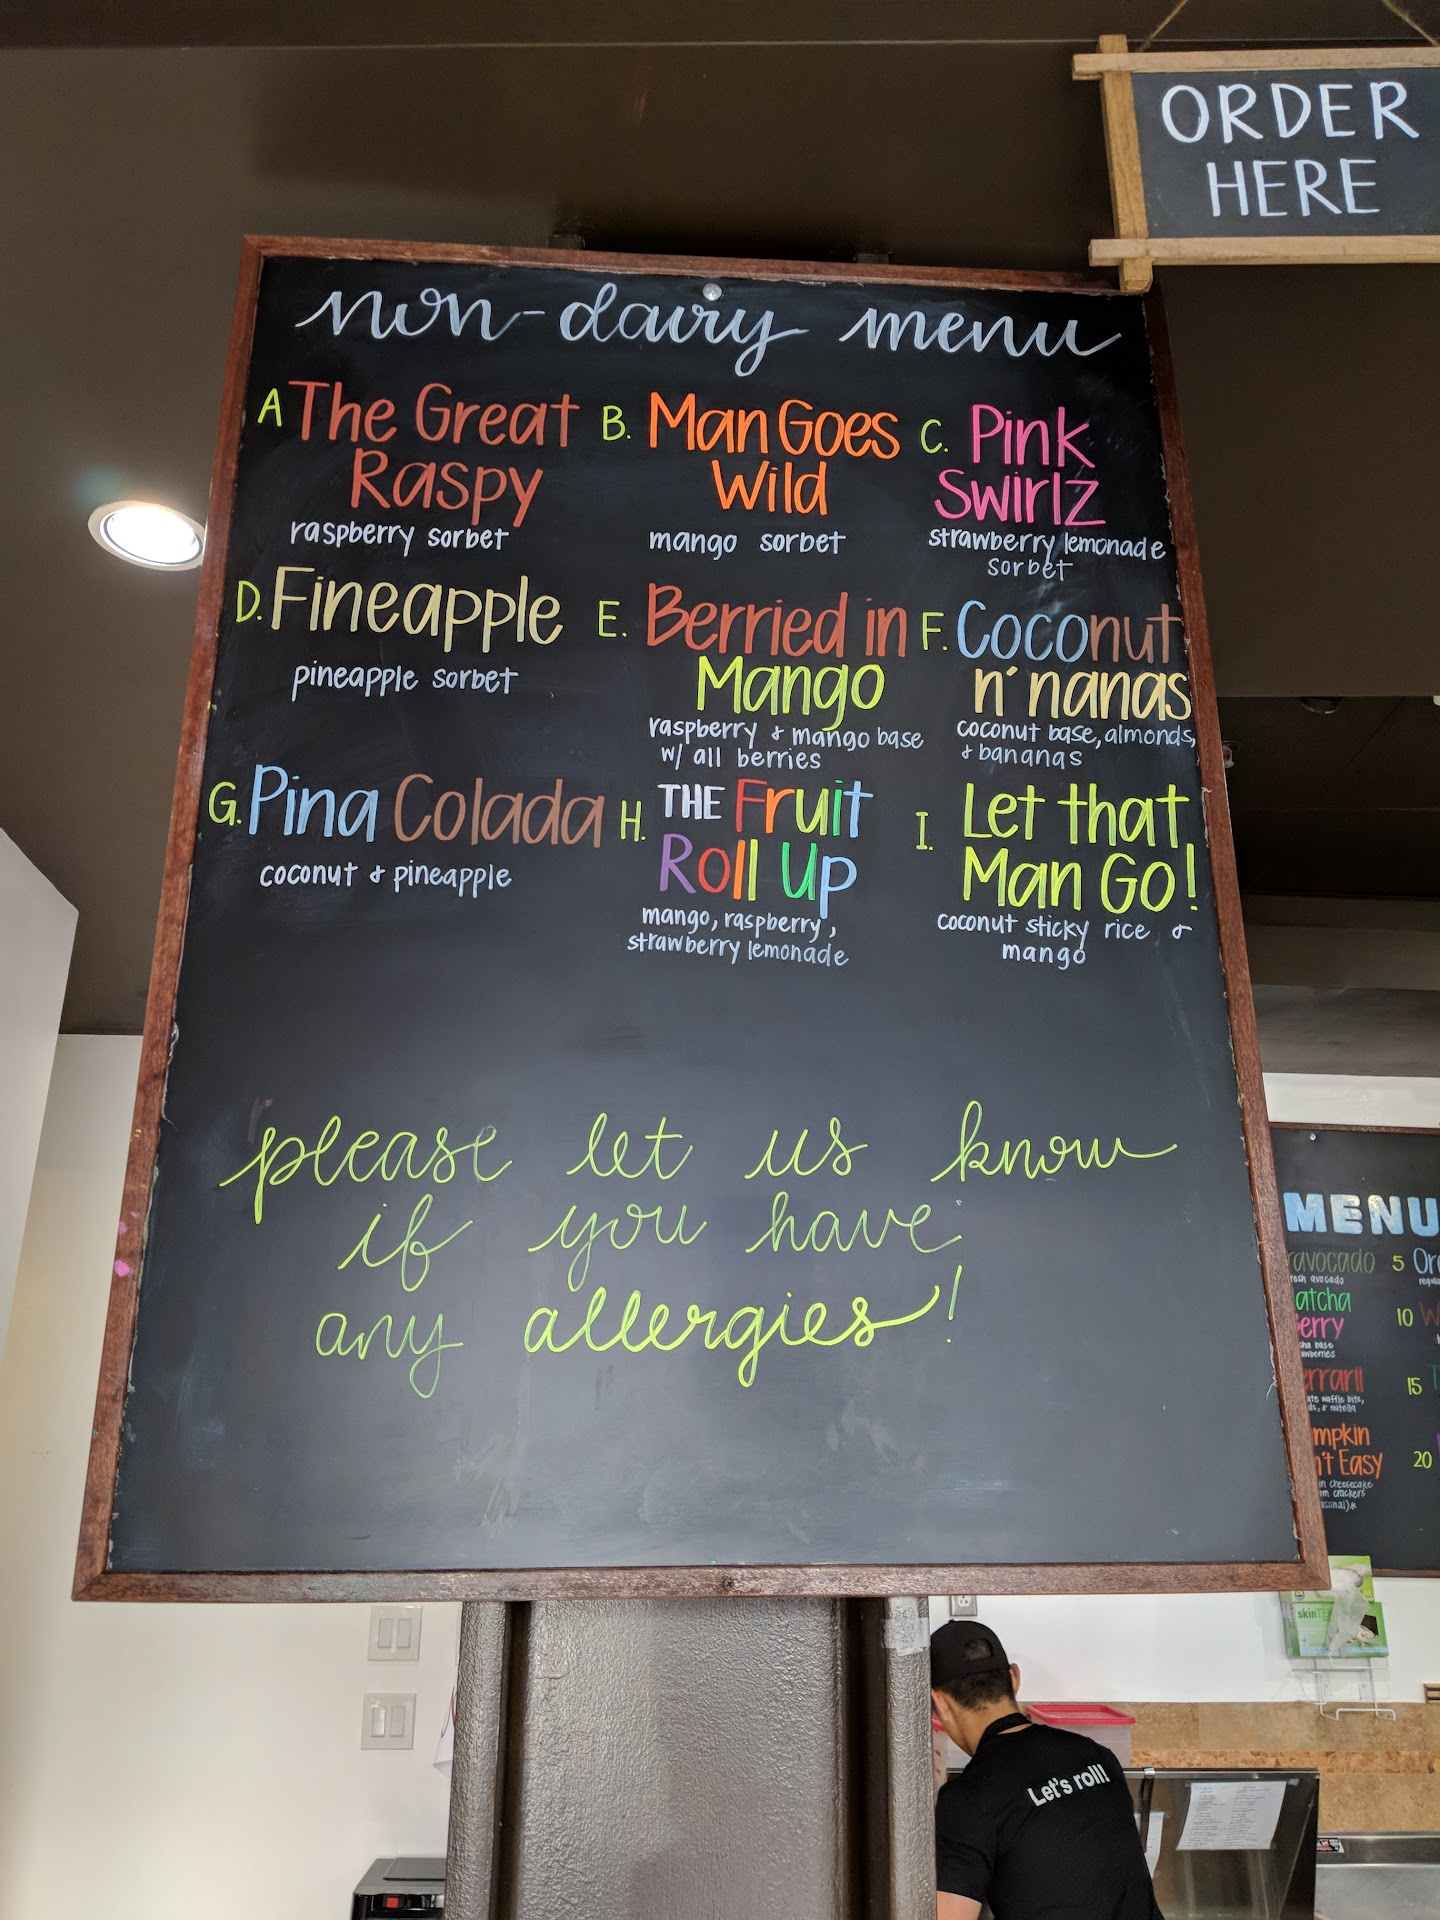 ORDER
HERE
non-dairy menu
A The Great
Raspy
raspberry sorbet
B. Man Goes
Wild
mango sorbet
C. Pink
Swirlz
strawberry lemonade
sorbet
D. Fineapple
pineapple sorbet
E. Berried in
Mango
raspberry & mango base
w/ all berries
F. Coconut
n' nanas
coconut base, almonds,
& bananas
G. Pina Colada
coconut & pineapple
H. THE Fruit
Roll Up
mango, raspberry,
strawberry lemonade
I. Let that
Man Go!
coconut sticky rice &
mango
please let us know
if you have
any allergies!
MENU
avocado
5
10
15
Easy
20
Let's roll!